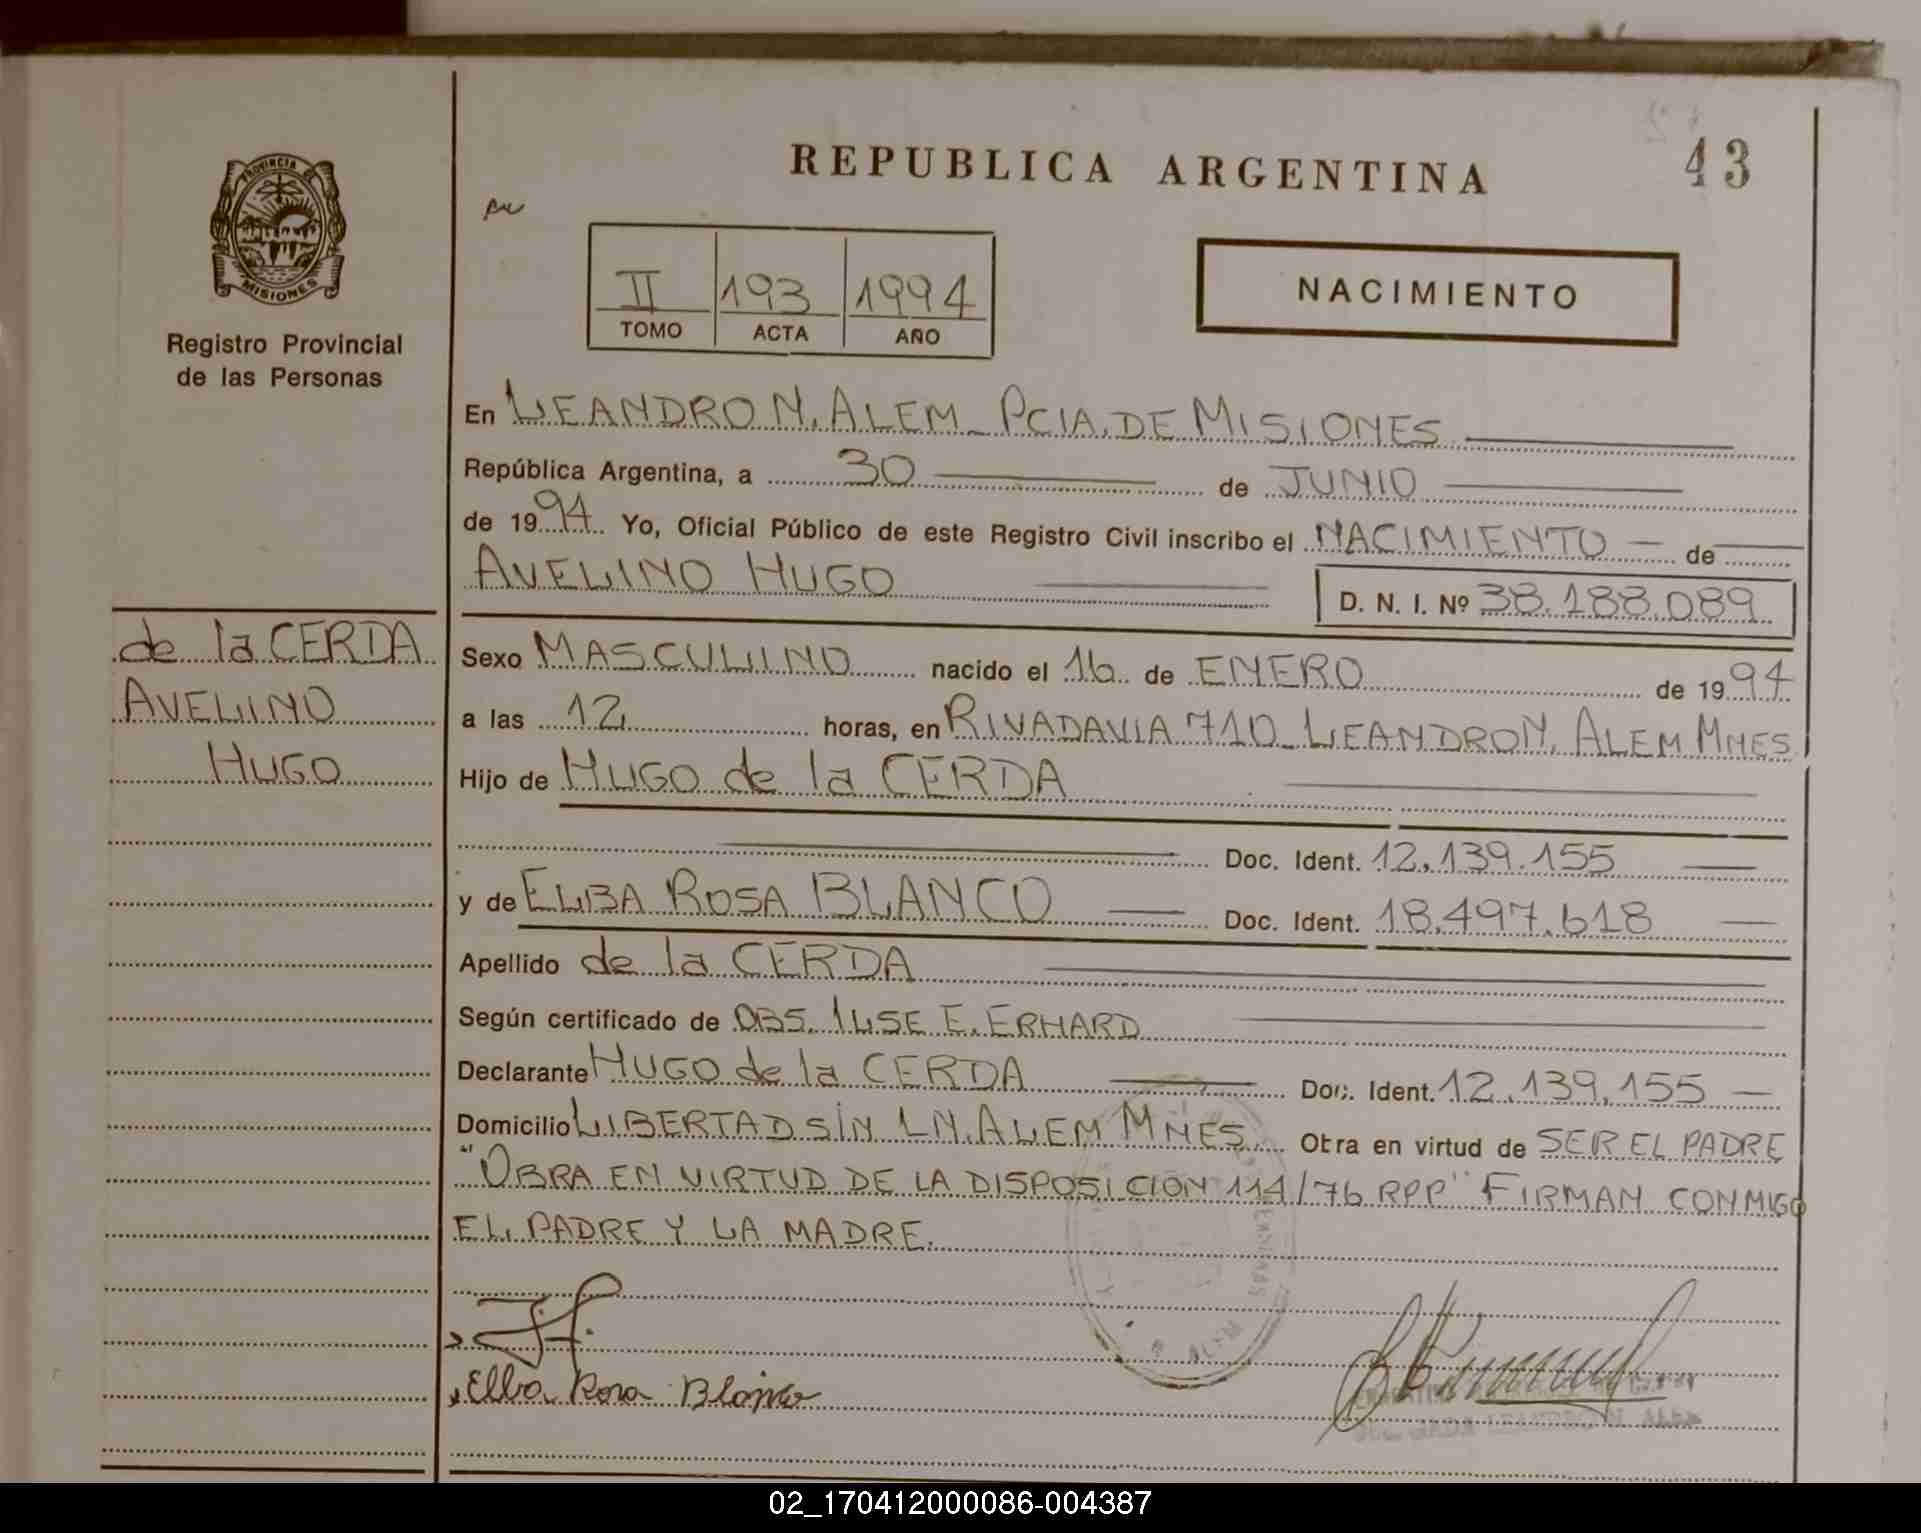 REPUBLICA ARGENTINA
43
PROVINCIA DE
MISIONES
Registro Provincial
de las Personas
II 193 1994
TOMO ACTA AÑO
NACIMIENTO
En LEANDRO N. ALEM - PCIA. DE MISIONES
República Argentina, a 30 de JUNIO
de 1994 Yo, Oficial Público de este Registro Civil inscribo el NACIMIENTO de
AVELINO HUGO D. N. I. Nº 38.188.089
de la CERDA
AVELINO
HUGO
Sexo MASCULINO nacido el 16 de ENERO de 1994
a las 12 horas, en RIVADAVIA 710 - LEANDRO N. ALEM MNES
Hijo de HUGO de la CERDA
Doc. Ident. 12.139.155
y de ELBA ROSA BLANCO Doc. Ident. 18.497.618
Apellido de la CERDA
Según certificado de OBS. ILSE E. ERHARD
Declarante HUGO de la CERDA Doc. Ident. 12.139.155
Domicilio LIBERTAD S/N L.N. ALEM MNES Otra en virtud de SER EL PADRE
"OBRA EN VIRTUD DE LA DISPOSICION 114/76 RPP" FIRMAN CONMIGO
EL PADRE Y LA MADRE.
Elba Rosa Blanco
02_170412000086-004387